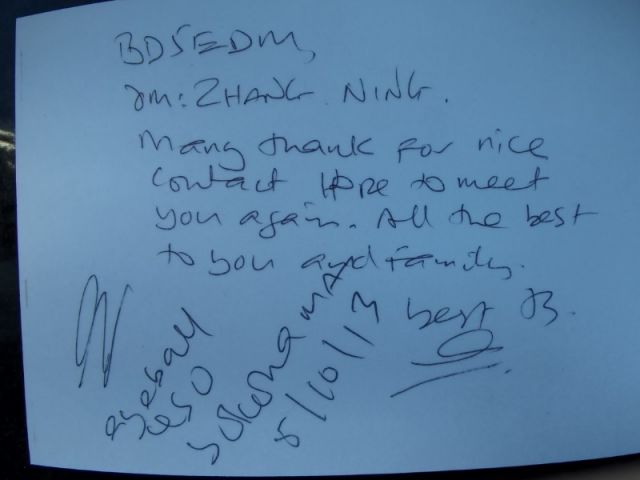 BD5EDM,
OM: ZHANG NING.
Many thank for nice
contact Hope to meet
you again. All the best
to you and family.
best 73.
eyeball
YOKOHAMA
5/10/13